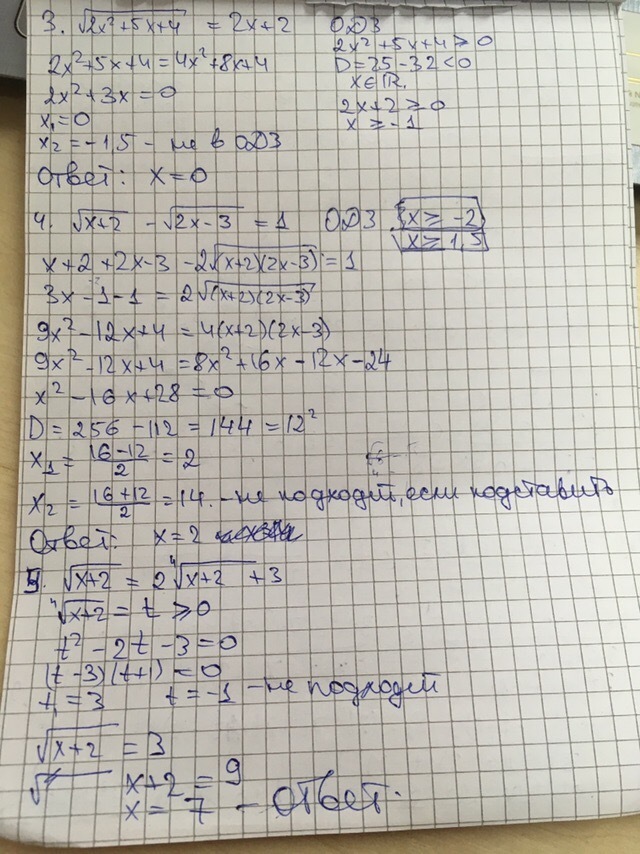 3. √(2x²+5x+4) = 2x+2 ОДЗ
2x²+5x+4 ≥ 0
2x²+5x+4 = 4x²+8x+4 D = 25 - 32 < 0
x∈ℝ.
2x²+3x = 0
2x+2 ≥ 0
x₁ = 0 x ≥ -1
x₂ = -1,5 - не в ОДЗ
Ответ: x = 0
4. √(x+2) - √(2x-3) = 1 ОДЗ x ≥ -2
x ≥ 1,5
x+2+2x-3 - 2√((x+2)(2x-3)) = 1
3x - 1 - 1 = 2√((x+2)(2x-3))
9x² - 12x + 4 = 4(x+2)(2x-3)
9x² - 12x + 4 = 8x² + 16x - 12x - 24
x² - 16x + 28 = 0
D = 256 - 112 = 144 = 12²
x₁ = (16-12)/2 = 2
x₂ = (16+12)/2 = 14. - не подходит, если подставить
Ответ: x = 2
5. √(x+2) = 2⁴√(x+2) + 3
⁴√(x+2) = t ≥ 0
t² - 2t - 3 = 0
(t-3)(t+1) = 0
t₁ = 3 t = -1 - не подходит
√(x+2) = 3
x+2 = 9
x = 7 - Ответ.